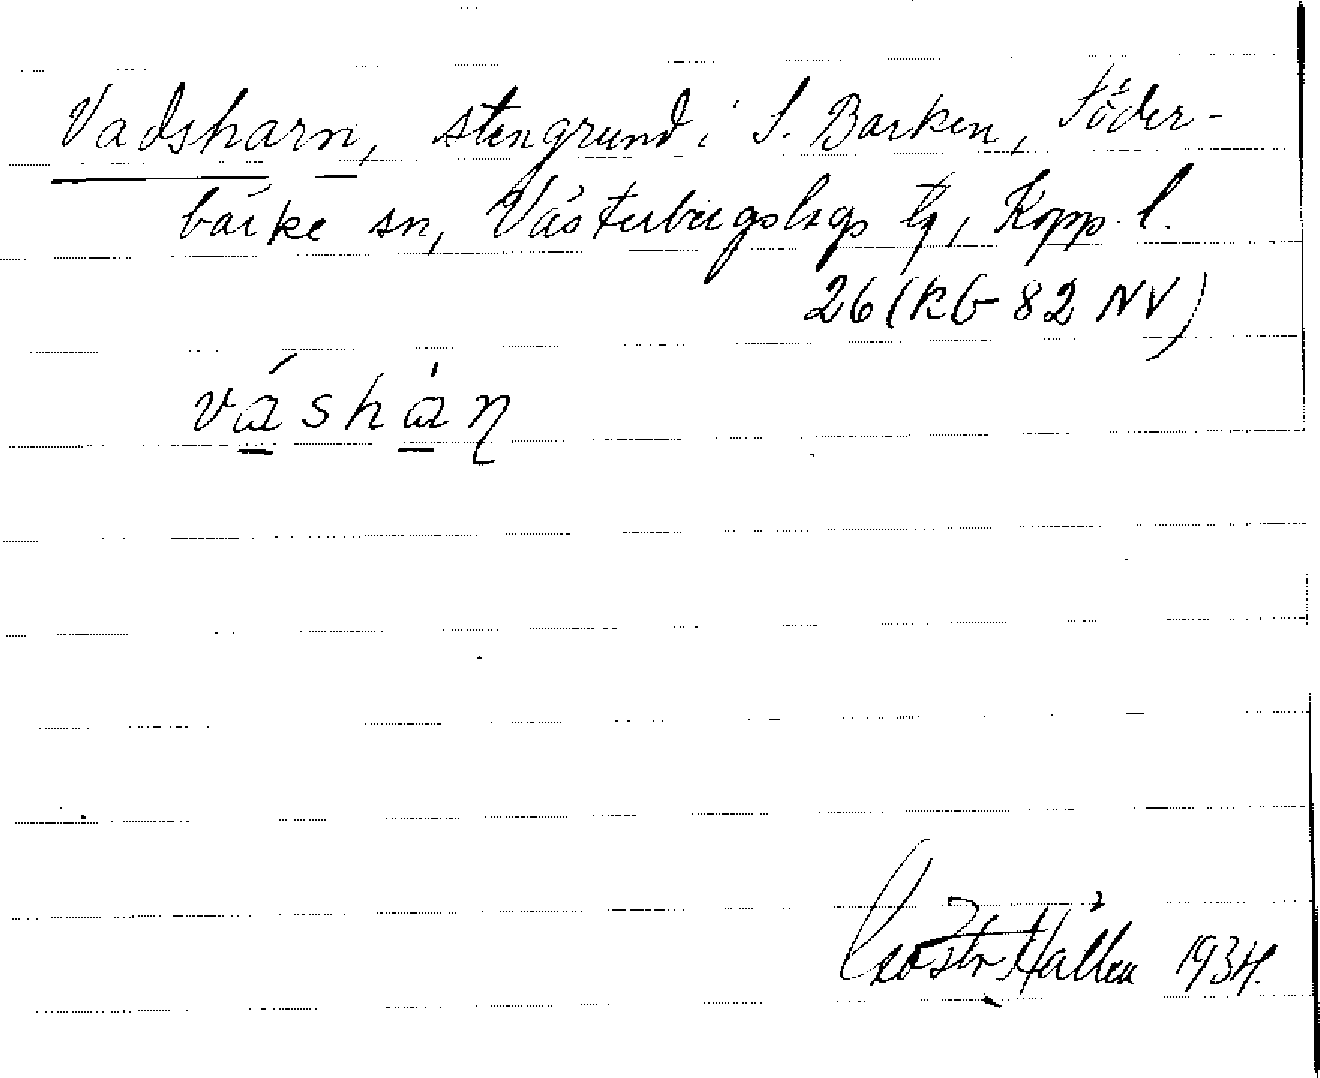 Vadsharn, stengrund i S. Barken, Söder-
bärke sn, Västerbergslags tg, Kopp. l.
26 (KG 82 NV)
váshàṇ
Hållen 1934.